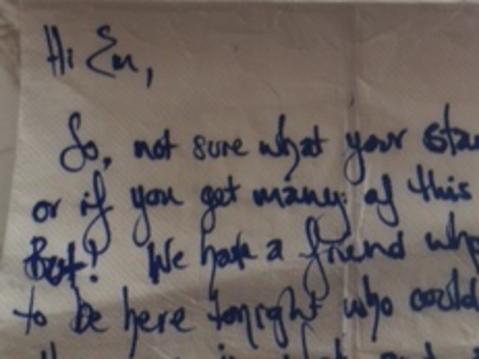 Hi Em,
So, not sure what your
or if you get many of this
But! We have a friend who
to be here tonight who could